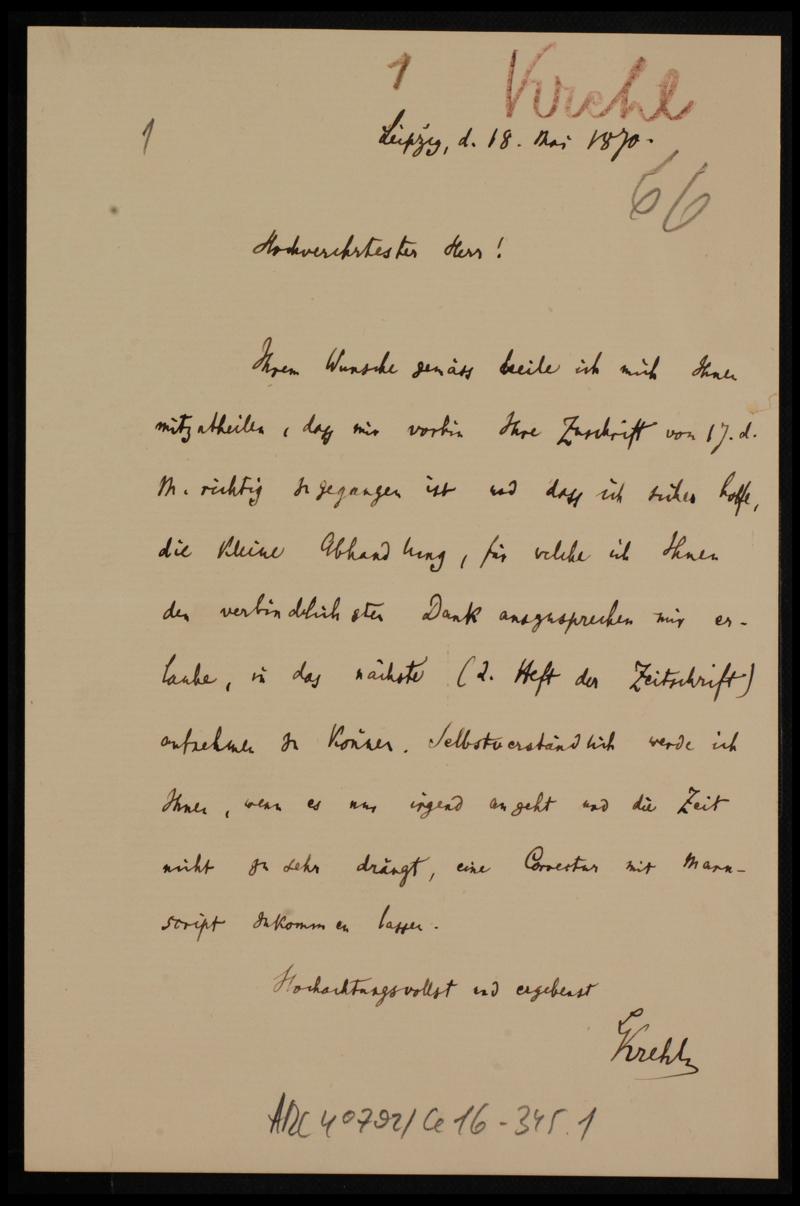 1
Krehl
1
Leipzig, d. 18. Mai 1870.
66
Hochverehrtester Herr!
Ihrem Wunsche gemäss beeile ich mich Ihnen
mitzutheilen, dass mir vorhin Ihre Zuschrift von 17. d.
M. richtig zugegangen ist und dass ich sicher hoffe,
die kleine Abhandlung, für welche ich Ihnen
den verbindlichsten Dank auszusprechen mir er-
laube, in das nächste (2. Heft der Zeitschrift)
aufnehmen zu können. Selbstverständlich werde ich
Ihnen, wenn es nur irgend angeht und die Zeit
nicht zu sehr drängt, eine Correctur mit Manu-
script zukommen lassen.
Hochachtungsvollst und ergebenst
LKrehl
ARC 4°792/Ce 16-345.1